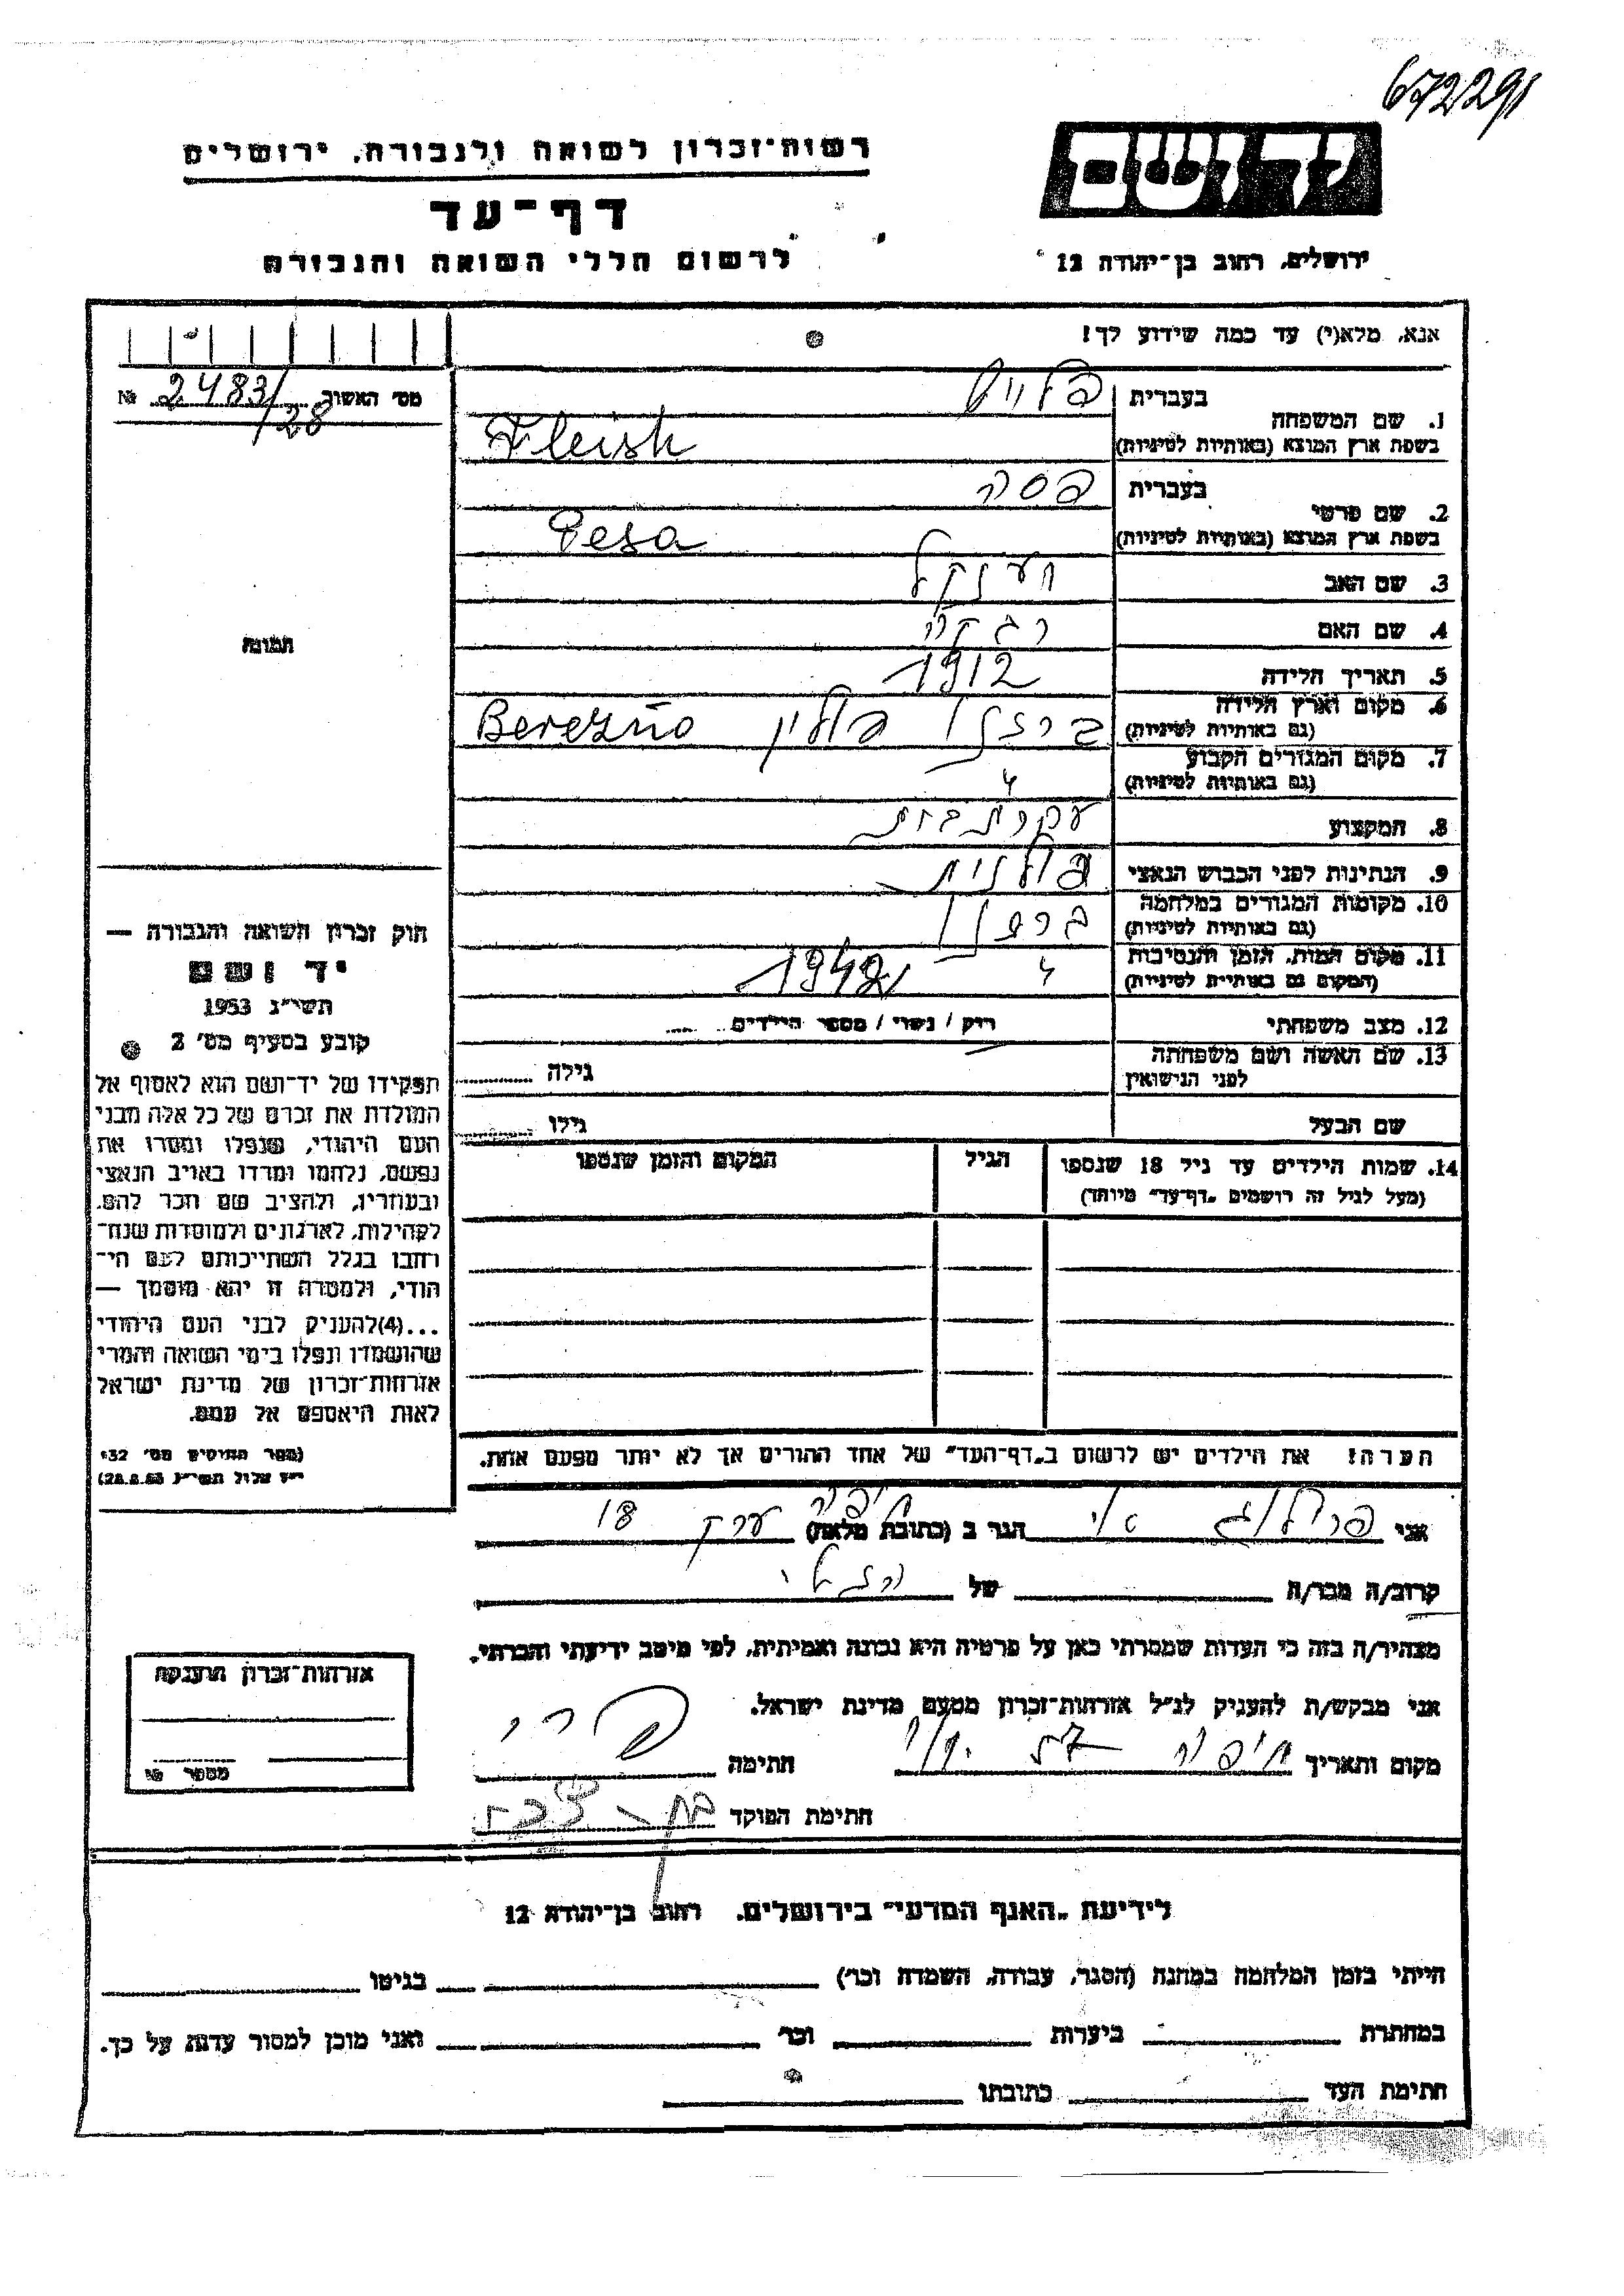 672291
רשות־זכרון לשואה ולגבורה, ירושלים
דף־עד
לרשום חללי השואה והגבורה
יד ושם
ירושלים, רחוב בן־יהודה 12
אנא, מלא(י) עד כמה שידוע לך!
מס׳ האשור № 2483/28
תמונה
חוק זכרון השואה והגבורה —
יד ושם
תשי״ג 1953
קובע בסעיף מס׳ 2
תפקידו של יד־ושם הוא לאסוף אל
המולדת את זכרם של כל אלה מבני
העם היהודי, שנפלו ומסרו את
נפשם, נלחמו ומרדו באויב הנאצי
ובעוזריו, ולהציב שם וזכר להם,
לקהילות, לארגונים ולמוסדות שנח־
רחבו בגלל השתייכותם לעם הי־
הודי, ולמטרה זו יהא מוסמך —
...(4)להעניק לבני העם היהודי
שהושמדו ונפלו בימי השואה והמרי
אזרחות־זכרון של מדינת ישראל
לאות היאספם אל עמם.
(ספר החוקים מס׳ 132
י״ז אלול תשי״ג 28.8.53)
1. שם המשפחה בעברית פלייש
בשפת ארץ המוצא (באותיות לטיניות) Fleish
2. שם פרטי בעברית פסה
בשפת ארץ המוצא (באותיות לטיניות) Pesa
3. שם האב יענקל
4. שם האם רבקה
5. תאריך הלידה 1912
6. מקום וארץ הלידה (גם באותיות לטיניות) ברזנו פולין Berezno
7. מקום המגורים הקבוע (גם באותיות לטיניות) "
8. המקצוע עקרת בית
9. הנתינות לפני הכבוש הנאצי פולנית
10. מקומות המגורים במלחמה (גם באותיות לטיניות) ברזנו
11. מקום המות, הזמן והנסיבות (המקום גם באותיות לטיניות) " 1942
12. מצב משפחתי רוק / נשוי / מספר הילדים
13. שם האשה ושם משפחתה לפני הנישואין גילה
שם הבעל גילו
14. שמות הילדים עד גיל 18 שנספו (מעל לגיל זה רושמים „דף־עד״ מיוחד) הגיל המקום והזמן שנספו
הערה! את הילדים יש לרשום ב„דף־העד״ של אחד ההורים אך לא יותר מפעם אחת.
אני הגר ב (כתובת מלאה) חיפה 18
קרוב/ה מכר/ה של
מצהיר/ה בזה כי העדות שמסרתי כאן על פרטיה היא נכונה ואמיתית, לפי מיטב ידיעתי והכרתי.
אני מבקש/ת להעניק לנ״ל אזרחות־זכרון מטעם מדינת ישראל.
מקום ותאריך חיפה חתימה
חתימת הפוקד
אזרחות־זכרון הוענקה
מספר №
לידיעת „האגף המדעי״ בירושלים, רחוב בן־יהודה 12
הייתי בזמן המלחמה במחנה (הסגר, עבודה, השמדה וכו׳) בגיטו
במחתרת ביערות וכו׳ ואני מוכן למסור עדות על כך.
חתימת העד כתובתו